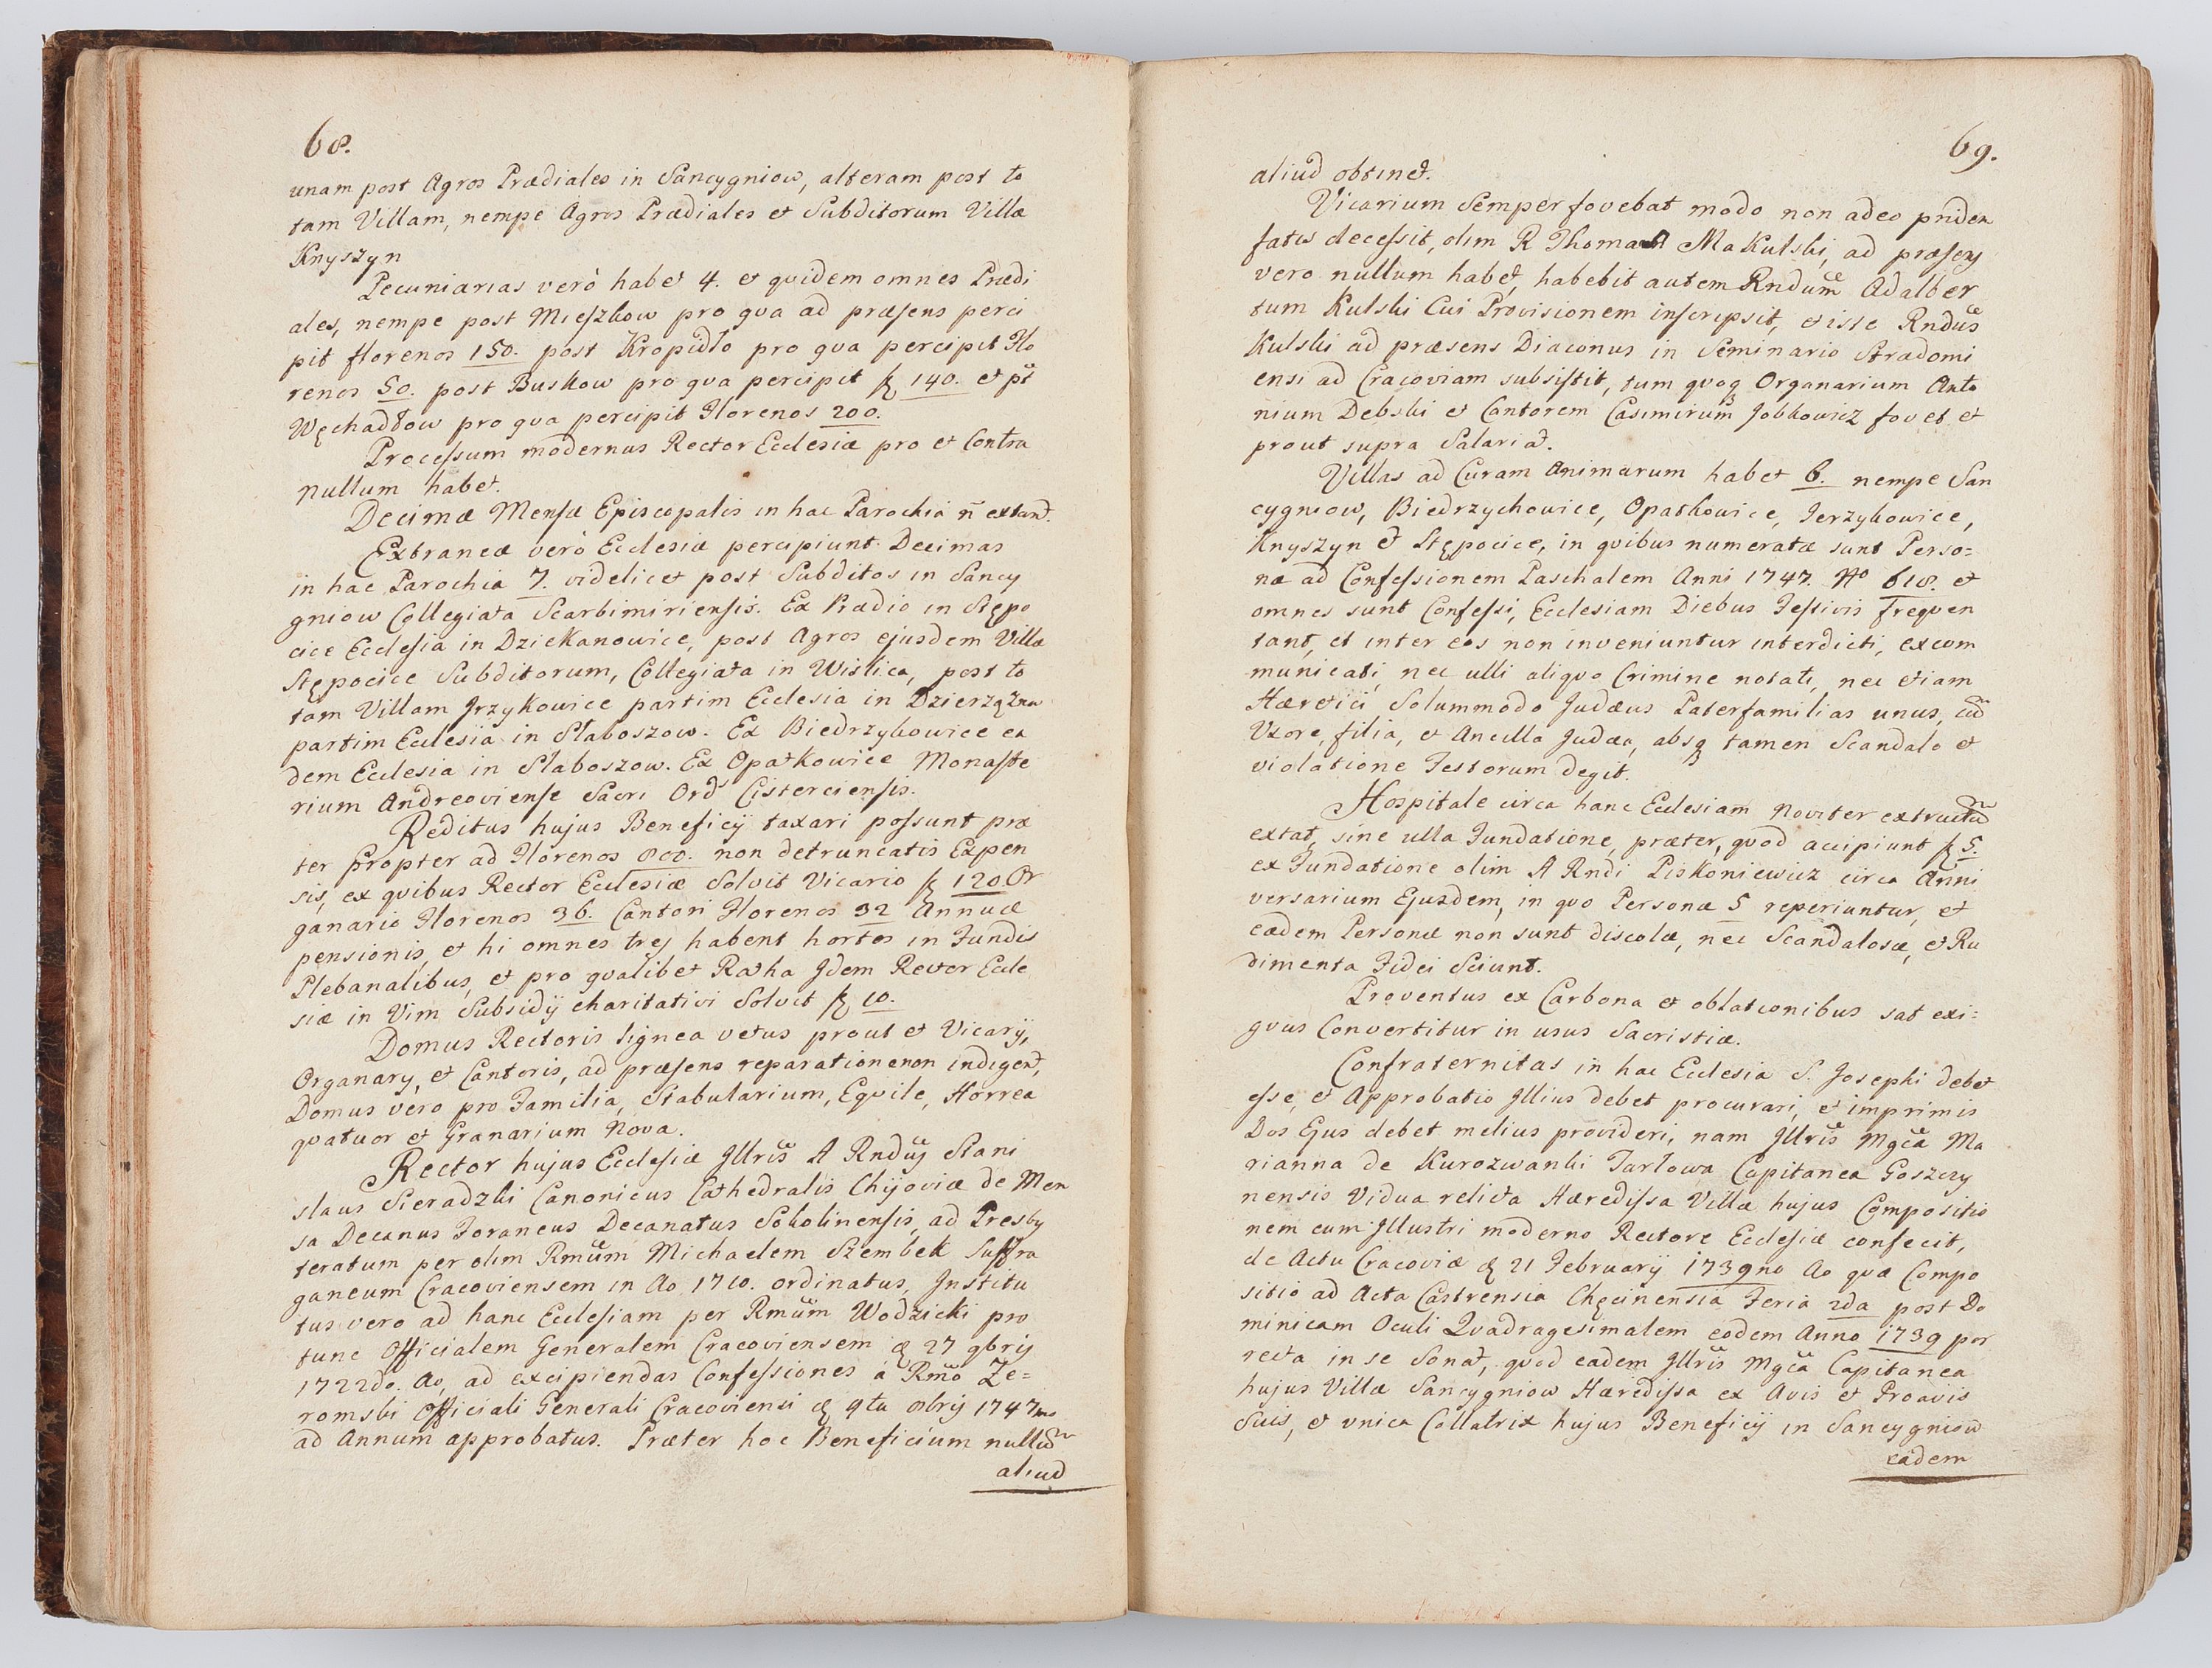 68.
unam post Agros Prædiales in Sancygniow, alteram post to
tam Villam, nempe Agros Prædiales et Subditorum Villæ
Knyszyn
Pecuniarias verò habet 4. et quidem omnes Prædi
ales, nempe post Mieszkow pro qva ad præsens perci
pit florenos 150. post Kropidło pro qva percipit Flo
renos 50. post Buskow pro qva percipit f 140. et pt
Węchadłow pro qva percipit Florenos 200.
Processum modernus Rector Ecclesiæ pro et Contra
nullum habet.
Decimæ Mensæ Episcopalis in hac Parochia n̄ extant.
Extraneæ verò Ecclesiæ percipiunt Decimas
in hac Parochia 7. videlicet post Subditos in Sancy
gniow Collegiata Scarbimiriensis. Ex Prædio in Stępo
cice Ecclesia in Dziekanowice, post Agros ejusdem Villæ
Stępocice Subditorum, Collegiata in Wislica, post to
tam Villam Jrzykowice partim Ecclesia in Dzierzążnia
partim Ecclesia in Słaboszow. Ex Biedrzykowice ea
dem Ecclesia in Słaboszow. Ex Opatkowice Monaste
rium Andreoviense Sacri Ord Cisterciensis.
Reditus hujus Beneficij taxari possunt præ
ter propter ad Florenos 800. non detruncatis Expen
sis, ex qvibus Rector Ecclesiæ Solvit Vicario f 120 Or
ganario Florenos 36. Cantori Florenos 32 Annuæ
pensionis, et hi omnes trej habent hortos in Fundis
Plebanalibus, et pro qvalibet Ratha Jdem Rector Eccle
siæ in Vim Subsidij charitativi Solvit f 10.
Domus Rectoris lignea vetus prout et Vicarij,
Organarij, et Cantoris, ad præsens reparatione non indigent,
Domus vero pro Familia, Stabularium, Eqvile, Horrea
qvatuor et Granarium Nova.
Rector hujus Ecclesiæ Jllris A Rndus Stani
slaus Sieradzki Canonicus Cathedralis Chijoviæ de Men
sa Decanus Foraneus Decanatus Sokolinensis, ad Presby
teratum per olim Rmum Michaelem Szembek Suffra
ganeum Cracoviensem in Ao 1710. ordinatus, Jnstitu
tus vero ad hanc Ecclesiam per Rmum Wodzicki pro
tunc Officialem Generalem Cracoviensem 27 9bris
1722do. Ao, ad excipiendas Confessiones à Rmo Ze=
romski Officiali Generali Cracoviensi 9ta 8bris 1747mo
ad Annum approbatus. Præter hoc Beneficium nullud
aliud
69.
aliud obtinet.
Vicarium Semper fovebat modo non adeo pridem
fatis decessit, olim R Thomam MaKulski, ad præsens
vero nullum habet, habebit autem Rndum Adalber
tum Kulski Cui Provisionem inscripsit, et iste Rndus
Kulski ad præsens Diaconus in Seminario Stradomi
ensi ad Cracoviam subsistit, tum qvoq Organarium Anto
nium Debski et Cantorem Casimirum Jobkowicz fovet et
prout supra Salariat.
Villas ad Curam Animarum habet 6. nempe San
cygniow, Biedrzychowice, Opatkowice, Jerzykowice,
Knyszyn et Stępocice, in qvibus numeratæ sunt Perso=
næ ad Confessionem Paschalem Anni 1747. No 618. et
omnes sunt Confessi, Ecclesiam Diebus Festivis freqven
tant, et inter eos non inveniuntur interdicti, excom
municati, nec ulli aliqvo Crimine notati, nec etiam
Hæretici Solummodo Judæus Paterfamilias unus, cū
Vxore, filia, et Ancilla Judæa, absq tamen Scandalo et
violatione Festorum degit.
Hospitale circa hanc Ecclesiam Noviter extructū
extat, sine ulla Fundatione, præter, qvod accipiunt f 5.
ex Fundatione olim A Rndi Piskoniewicz circa Anni
versarium Ejusdem, in qvo Personæ 5 reperiuntur, et
eædem Personæ non sunt discolæ, nec Scandalosæ, et Ru
dimenta Fidei Sciunt.
Proventus ex Carbona et oblationibus sat exi=
guus Convertitur in usus Sacristiæ.
Confraternitas in hac Ecclesia S. Josephi debet
esse, et Approbatio Jllius debet procurari, et imprimis
Dos Ejus debet melius provideri, nam Jllris Mgca Ma
rianna de Kurozwanki Tarłowa Capitanea Goszczy
nensis Vidua relicta Hæredissa Villæ hujus Compositio
nem cum Jllustri moderno Rectore Ecclesiæ confecit,
de Actu Cracoviæ 21 Februarij 1739no Ao qvæ Compo
sitio ad Acta Castrensia Chęcinensia Feria 2da post Do
minicam Oculi Qvadragesimalem eodem Anno 1739 por
recta in se Sonat, qvod eadem Jllris Mgca Capitanea
hujus Villæ Sancygniow Hæredissa ex Avis et Proavis
Suis, et vnica Collatrix hujus Beneficij in Sancygniow
eadem